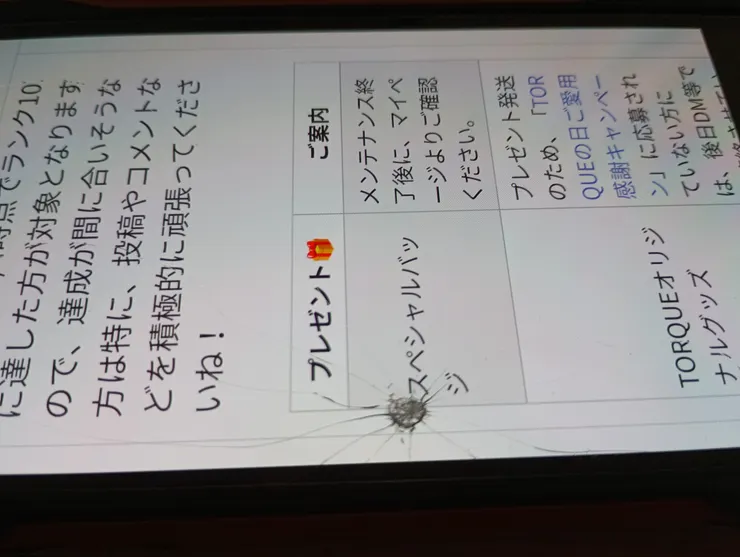 時点でランク10
に達した方が対象となります
ので、達成が間に合いそうな
方は特に、投稿やコメントな
どを積極的に頑張ってくださ
いね！
プレゼント🎁
ご案内
スペシャルバッ
ジ
メンテナンス終
了後に、マイペ
ージよりご確認
ください。
TORQUEオリジ
ナルグッズ
プレゼント発送
のため、「TOR
QUEの日ご愛用
感謝キャンペー
ン」に応募され
ていない方に
は、後日DM等で